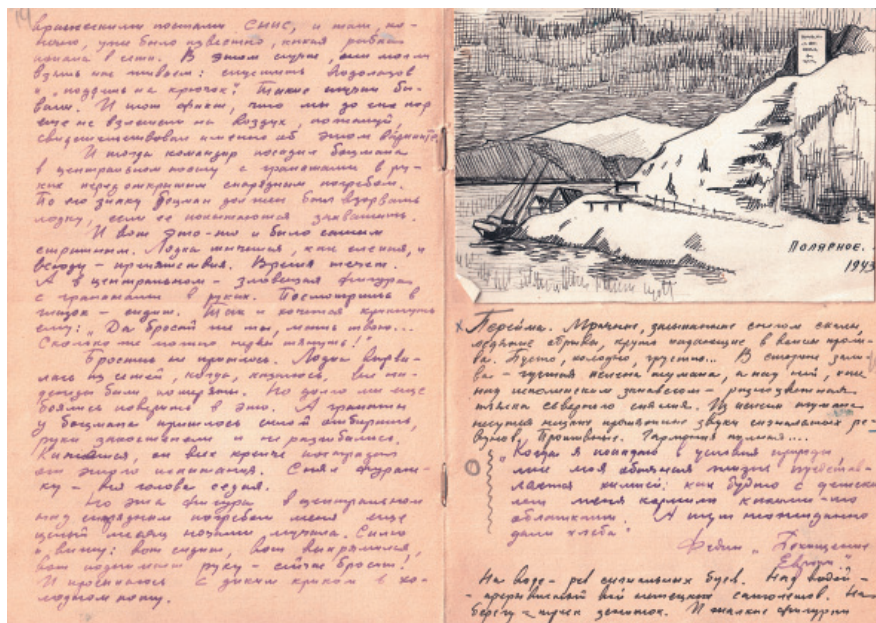 14
вражескими постами СНИС, и там, ко-
нечно, уже было известно, какая рыбка
попала в сети. В этом случае, они могли
взять нас живьем: спустить водолазов
и "поддеть на крючок". Такие случаи бы-
вали. И тот факт, что мы до сих пор
еще не взлетели на воздух, пожалуй,
свидетельствовал именно об этом варианте.
И тогда командир посадил боцмана
в центральном посту с гранатами в ру-
ках перед открытым снарядным погребом.
По его знаку боцман должен был взорвать
лодку, если ее попытаются захватить.
И вот это-то и было самым
страшным. Лодка тычется, как слепая, и
всюду - препятствия. Время течет.
А в центральном - зловещая фигура
с гранатами в руках. Посмотришь в
глазок - сидит. Так и хочется крикнуть
ему: "Да бросай же ты, мать твою...
Сколько же можно нервы тянуть!"
Бросить не пришлось. Лодка вырва-
лась из сетей, когда, казалось, все на-
дежды были потеряны. Но долго мы еще
боялись поверить в это. А гранаты
у боцмана пришлось силой отбирать,
руки закостенели и не разгибались.
он всех крепче пострадал
от этого испытания. Снял фураж-
ку - вся голова седая.
Но эта фигура в центральном
над снарядным погребом меня еще
целый месяц ночами мучила. Сплю
и вижу: вот сидит, вот выпрямился,
вот поднимает руку - сейчас бросит!
И просыпаюсь с диким криком в хо-
лодном поту.
ПОЛЯРНОЕ.
1943
Мрачные, засыпанные снегом скалы,
ледяные обрывы, круто падающие в воды проли-
ва. Пусто, холодно, грустно... В стороне зали-
ва - густая пелена тумана, а над ней, как
над исполинским занавесом - разноцветная
пляска северного сияния. Из пелены тумана
несутся низкие протяжные звуки сигнальных ре-
вунов. Противные. Гармония полная....
"Когда я попадаю в условия природы
мне моя обычная жизнь представ-
ляется химией: как будто с детских
лет меня кормили какими-то
облатками. А тут неожиданно
дали хлеба"
Федин "Похищение
Европы"
На воде - рев сигнальных буев. Над водой -
- прерывистый вой немецких самолетов. На
берегу - треск зениток. И жалкие фигурки